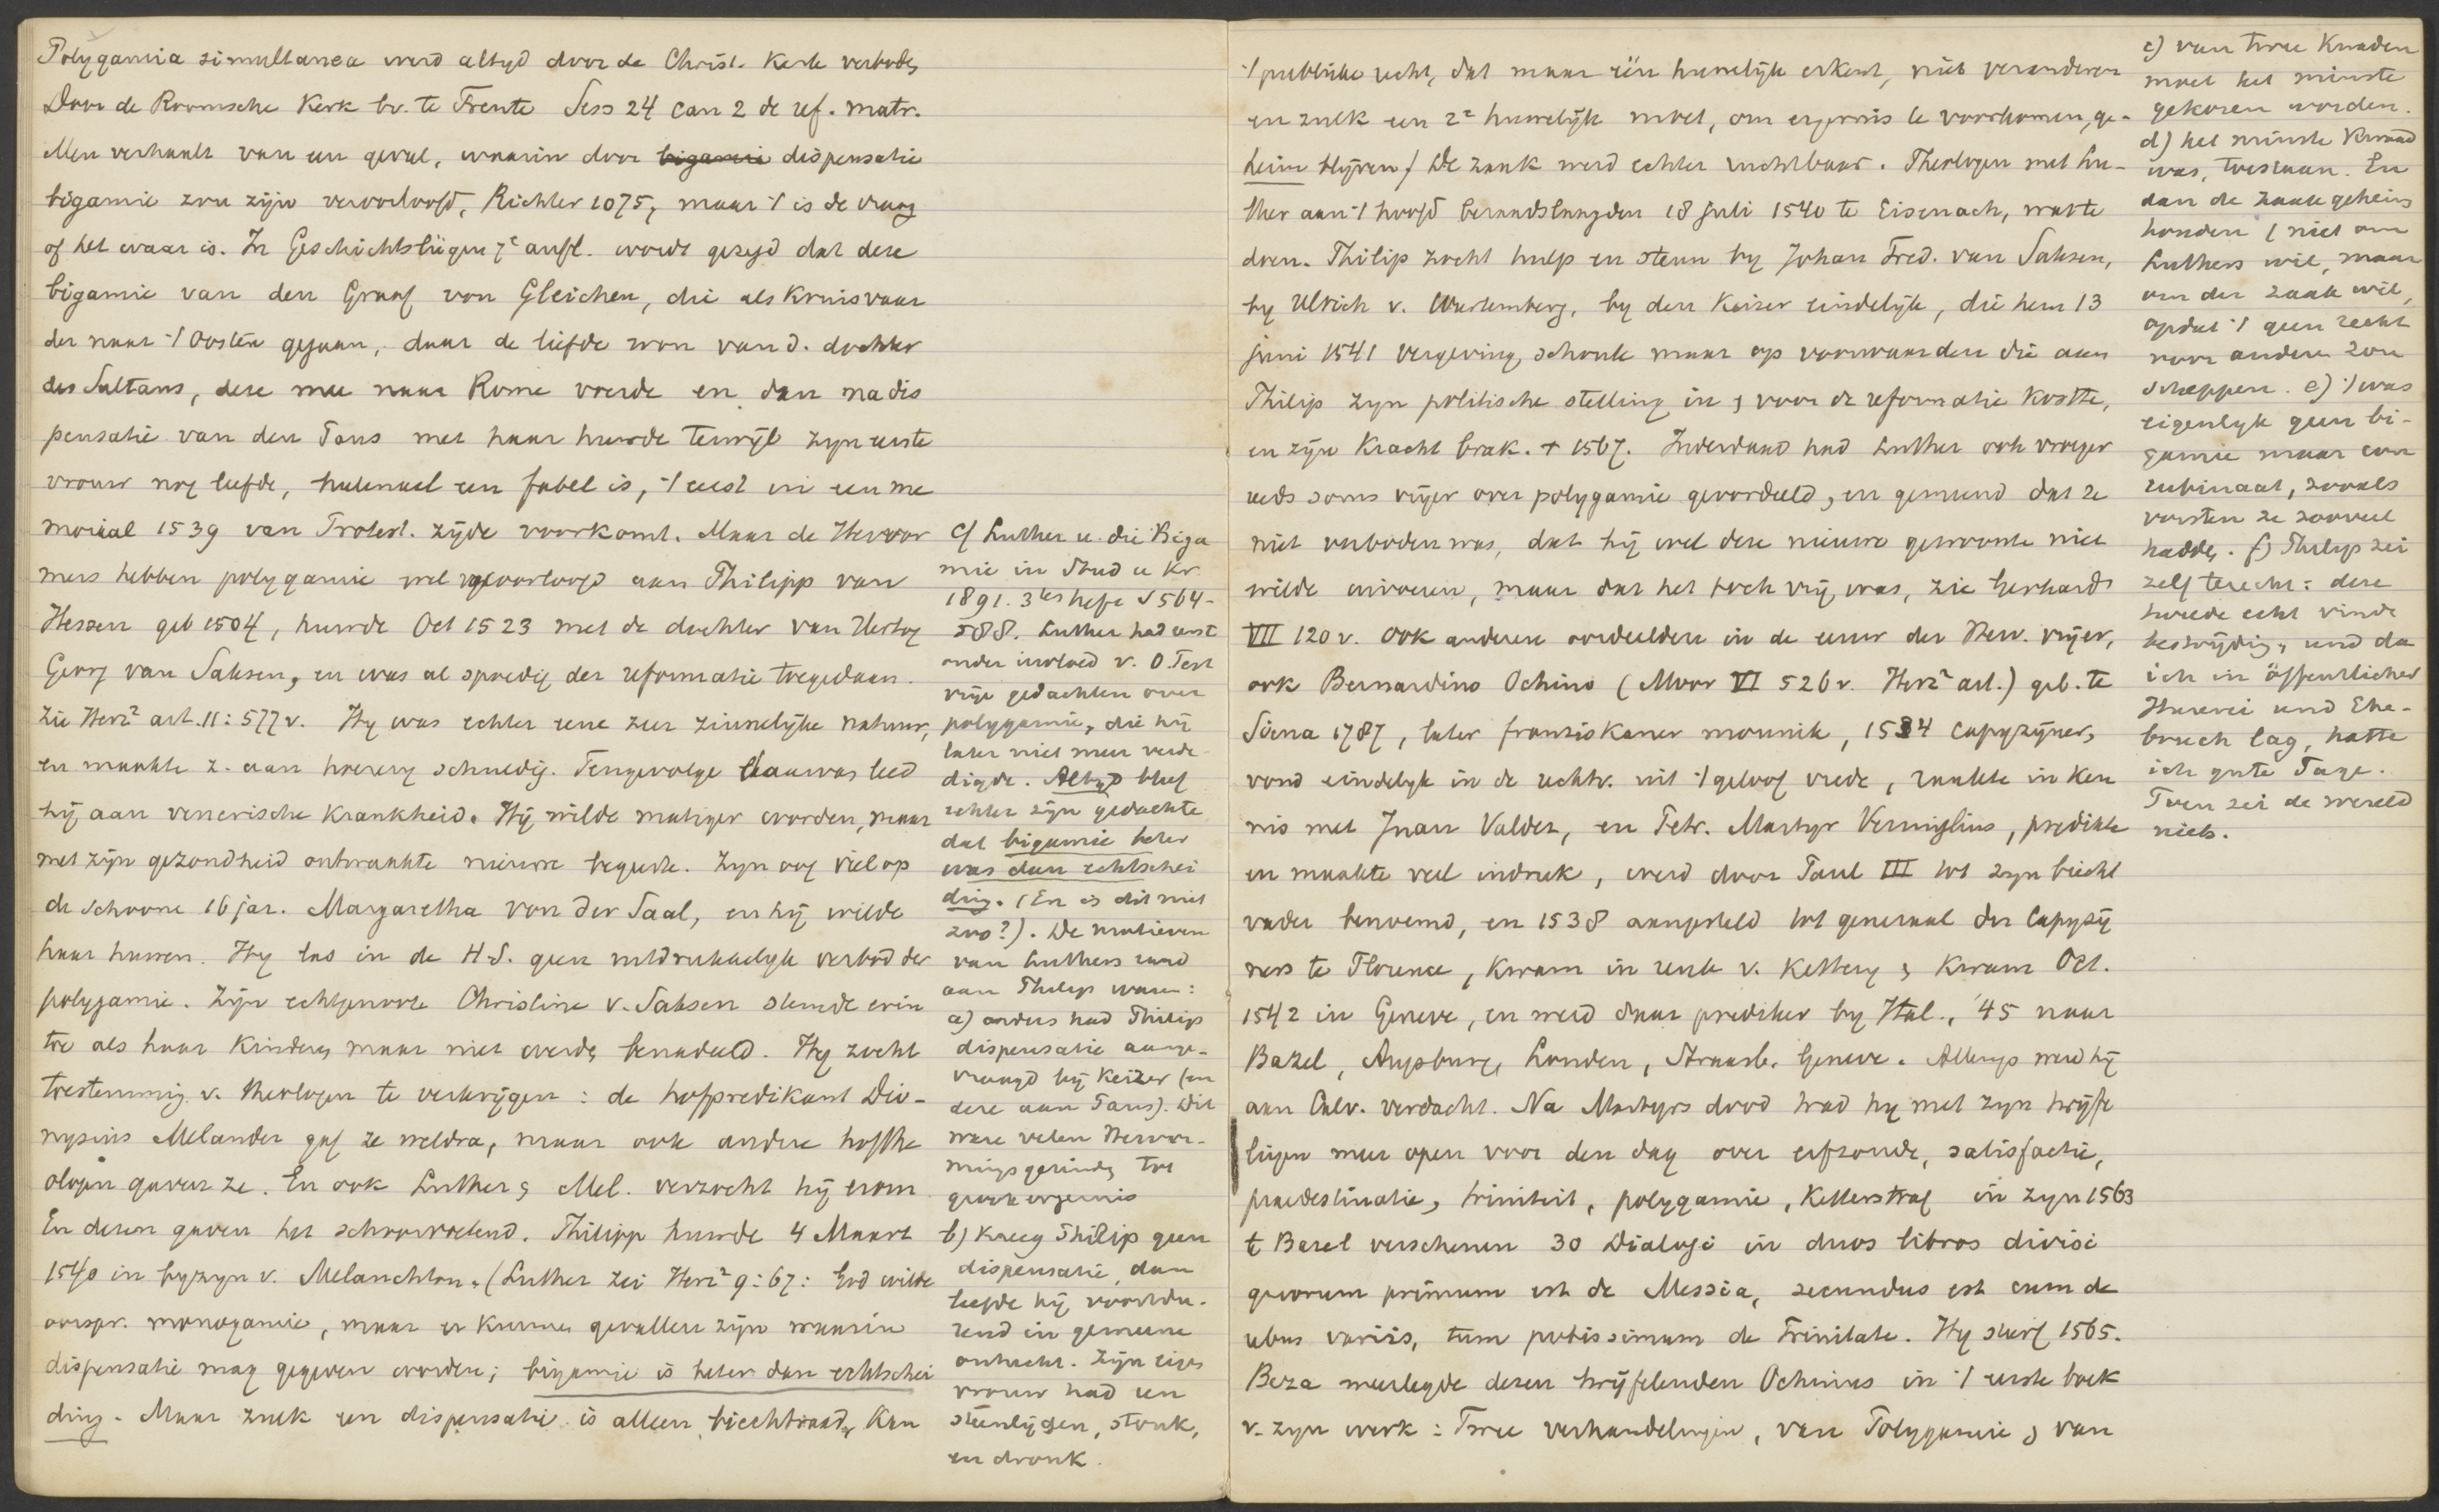 Polygamia simultanea werd altyd door de Christ. Kerk verboden
Door de Roomsche Kerk bv. te Trente Sess 24 can 2 de ref. matr.
Men verhaalt van een geval, waarin door bigamie dispensatie
bigamie zou zijn veroorloofd, Richter 1075, maar 't is de vraag
of het waar is. In Geschichtslügen 7e aufl. wordt gezegd dat deze
bigamie van den Graaf von Gleichen, die als Kruisvaar
der naar 't Oosten gegaan, daar de liefde won van d. dochter
des Sultans, deze mee naar Rome voerde en dan na dis
pensatie van den Paus met haar huwde terwijl zyn eerste
vrouw nog leefde, helemaal een fabel is, 't eerst in een me
moriaal 1539 van Protest. zijde voorkomt. Maar de Hervor
mers hebben polygamie wel veroorloofd aan Philipp van
Hessen geb 1504, huwde Oct 1523 met de dochter van Hertog
Georg van Saksen, en was al spoedig der reformatie toegedaan.
Zie Herz² art. 11: 577v. Hy was echter eene zeer zinnelijke natuur,
en maakte z. aan hoerery schuldig. Tengevolge daarvan leed
hij aan venerische krankheid. Hij wilde matiger worden, maar
met zijn gezondheid ontwaakte nieuwe begeerte. Zyn oog viel op
de schoone 16 jar. Margaretha von der Saal, en hij wilde
haar huwen. Hy las in de H.S. geen uitdrukkelyk verbod der
polygamie. Zijn echtgenoote Christine v. Saksen stemde erin
toe als haar kinderen maar niet werden benadeeld. Hy zocht
toestemming v. theologen te verkrijgen: de hofpredikant Dio-
nysius Melander gaf ze weldra, maar ook andere hofthe
ologen gaven ze. En ook Luther & Mel. verzocht hij erom
En dezen gaven het schoorvoetend. Philipp huwde 4 Maart
1540 in byzyn v. Melanchton. (Luther zei Herz² 9: 67: God wilde
oorspr. monogamie, maar er kunnen gevallen zijn waarin
dispensatie mag gegeven worden; bigamie is beter dan echtschei
ding. Maar zulk een dispensatie is alleen biechtraad, kan
c/ Luther u. die Biga
mie in Stud u Kr
1891. 3tes heft S 564-
588. Luther had eerst
onder invloed v. O. Test
vrije gedachten over
polygamie, die hij
later niet meer verde
digde. Altyd bleef
echter zijn gedachte
dat bigamie beter
was dan echtschei
ding. (En is dit niet
zoo?). De motieven
van Luthers raad
aan Philip waren:
a) anders had Philip
dispensatie aange-
vraagd bij Keizer (en
deze aan Paus). Dit
ware velen Hervor-
mingsgezinden tot
groote ergernis
b) Kreeg Philip geen
dispensatie, dan
leefde hij voortdu-
rend in gemeene
ontucht. Zijn eigen
vrouw had een
steenlijden, stonk,
en dronk.
't publieke recht, dat maar één huwelijk erkent, niet veranderen
en zulk een 2e huwelijk moet, om ergernis te voorkomen, ge-
heim blijven/ De zaak werd echter ruchtbaar. Theologen met Lu-
ther aan 't hoofd beraadslaagden 18 Juli 1540 te Eisenach, wat te
doen. Philip zocht hulp en steun by Johan Fred. van Saksen,
by Ulrich v. Wurtemberg, by den Keizer eindelijk, die hem 13
juni 1541 vergeving schonk maar op voorwaarden die aan
Philip zyn politische stelling in & voor de reformatie kostte,
en zijn kracht brak. + 1567. Inderdaad had Luther ook vroeger
reeds soms vrijer over polygamie geoordeeld, en gemeend dat ze
niet verboden was, dat hij wel deze nieuwe gewoonte niet
wilde invoeren, maar dat het toch vrij was, zie Gerhard
VII 120v. Ook anderen oordeelden in de eeuw der Herv. vrijer,
ook Bernardino Ochino (Moor VI 526v. Herz² art.) geb. te
Siena 1787, later franziskaner monnik, 1534 Capuzijner,
vond eindelyk in de rechtv. uit 't geloof vrede, raakte in ken
nis met Juan Valdez, en Petr. Martyr Vermiglius, predikte
en maakte veel indruk, werd door Paul III tot zyn biecht
vader benoemd, en 1538 aangesteld tot generaal der Capuzij
ners te Florence, kwam in reuk v. Kettery & kwam Oct.
1542 in Geneve, en werd daar prediker by Ital., '45 naar
Bazel, Augsburg, Londen, Straatsb. Geneve. Allengs werd hij
aan Calv. verdacht. Na Martyrs dood trad hy met zyn twijfe
lingen meer open voor den dag over erfzonde, satisfactie,
praedestinatie, triniteit, polygamie, Ketterstraf in zyn 1563
t Bazel verschenen 30 Dialogi in duos libros divisi
quorum primum est de Messia, secundus est cum de
rebus variis, tum potissimum de Trinitate. Hy stierf 1565.
Beza weerlegde dezen twijfelenden Ochinus in 't eerste boek
v. zyn werk: Twee verhandelingen, van Polygamie & van
c) van twee kwaden
moet het minste
gekozen worden.
d) het minste kwaad
was, toestaan. En
dan de zaak geheim
houden (niet om
Luthers wil, maar
om der zaak wil,
opdat 't geen recht
voor andere zou
scheppen. e) 't was
eigenlyk geen bi-
gamie maar con
cubinaat, zooals
vorsten ze zooveel
hadden. f) Philip zei
zelf terecht: deze
tweede echt vinde
bestrijding, und da
ich in öffentlicher
Hurerei und Ehe-
bruch lag, hatte
ich gute Tage.
Toen zei de wereld
niets.